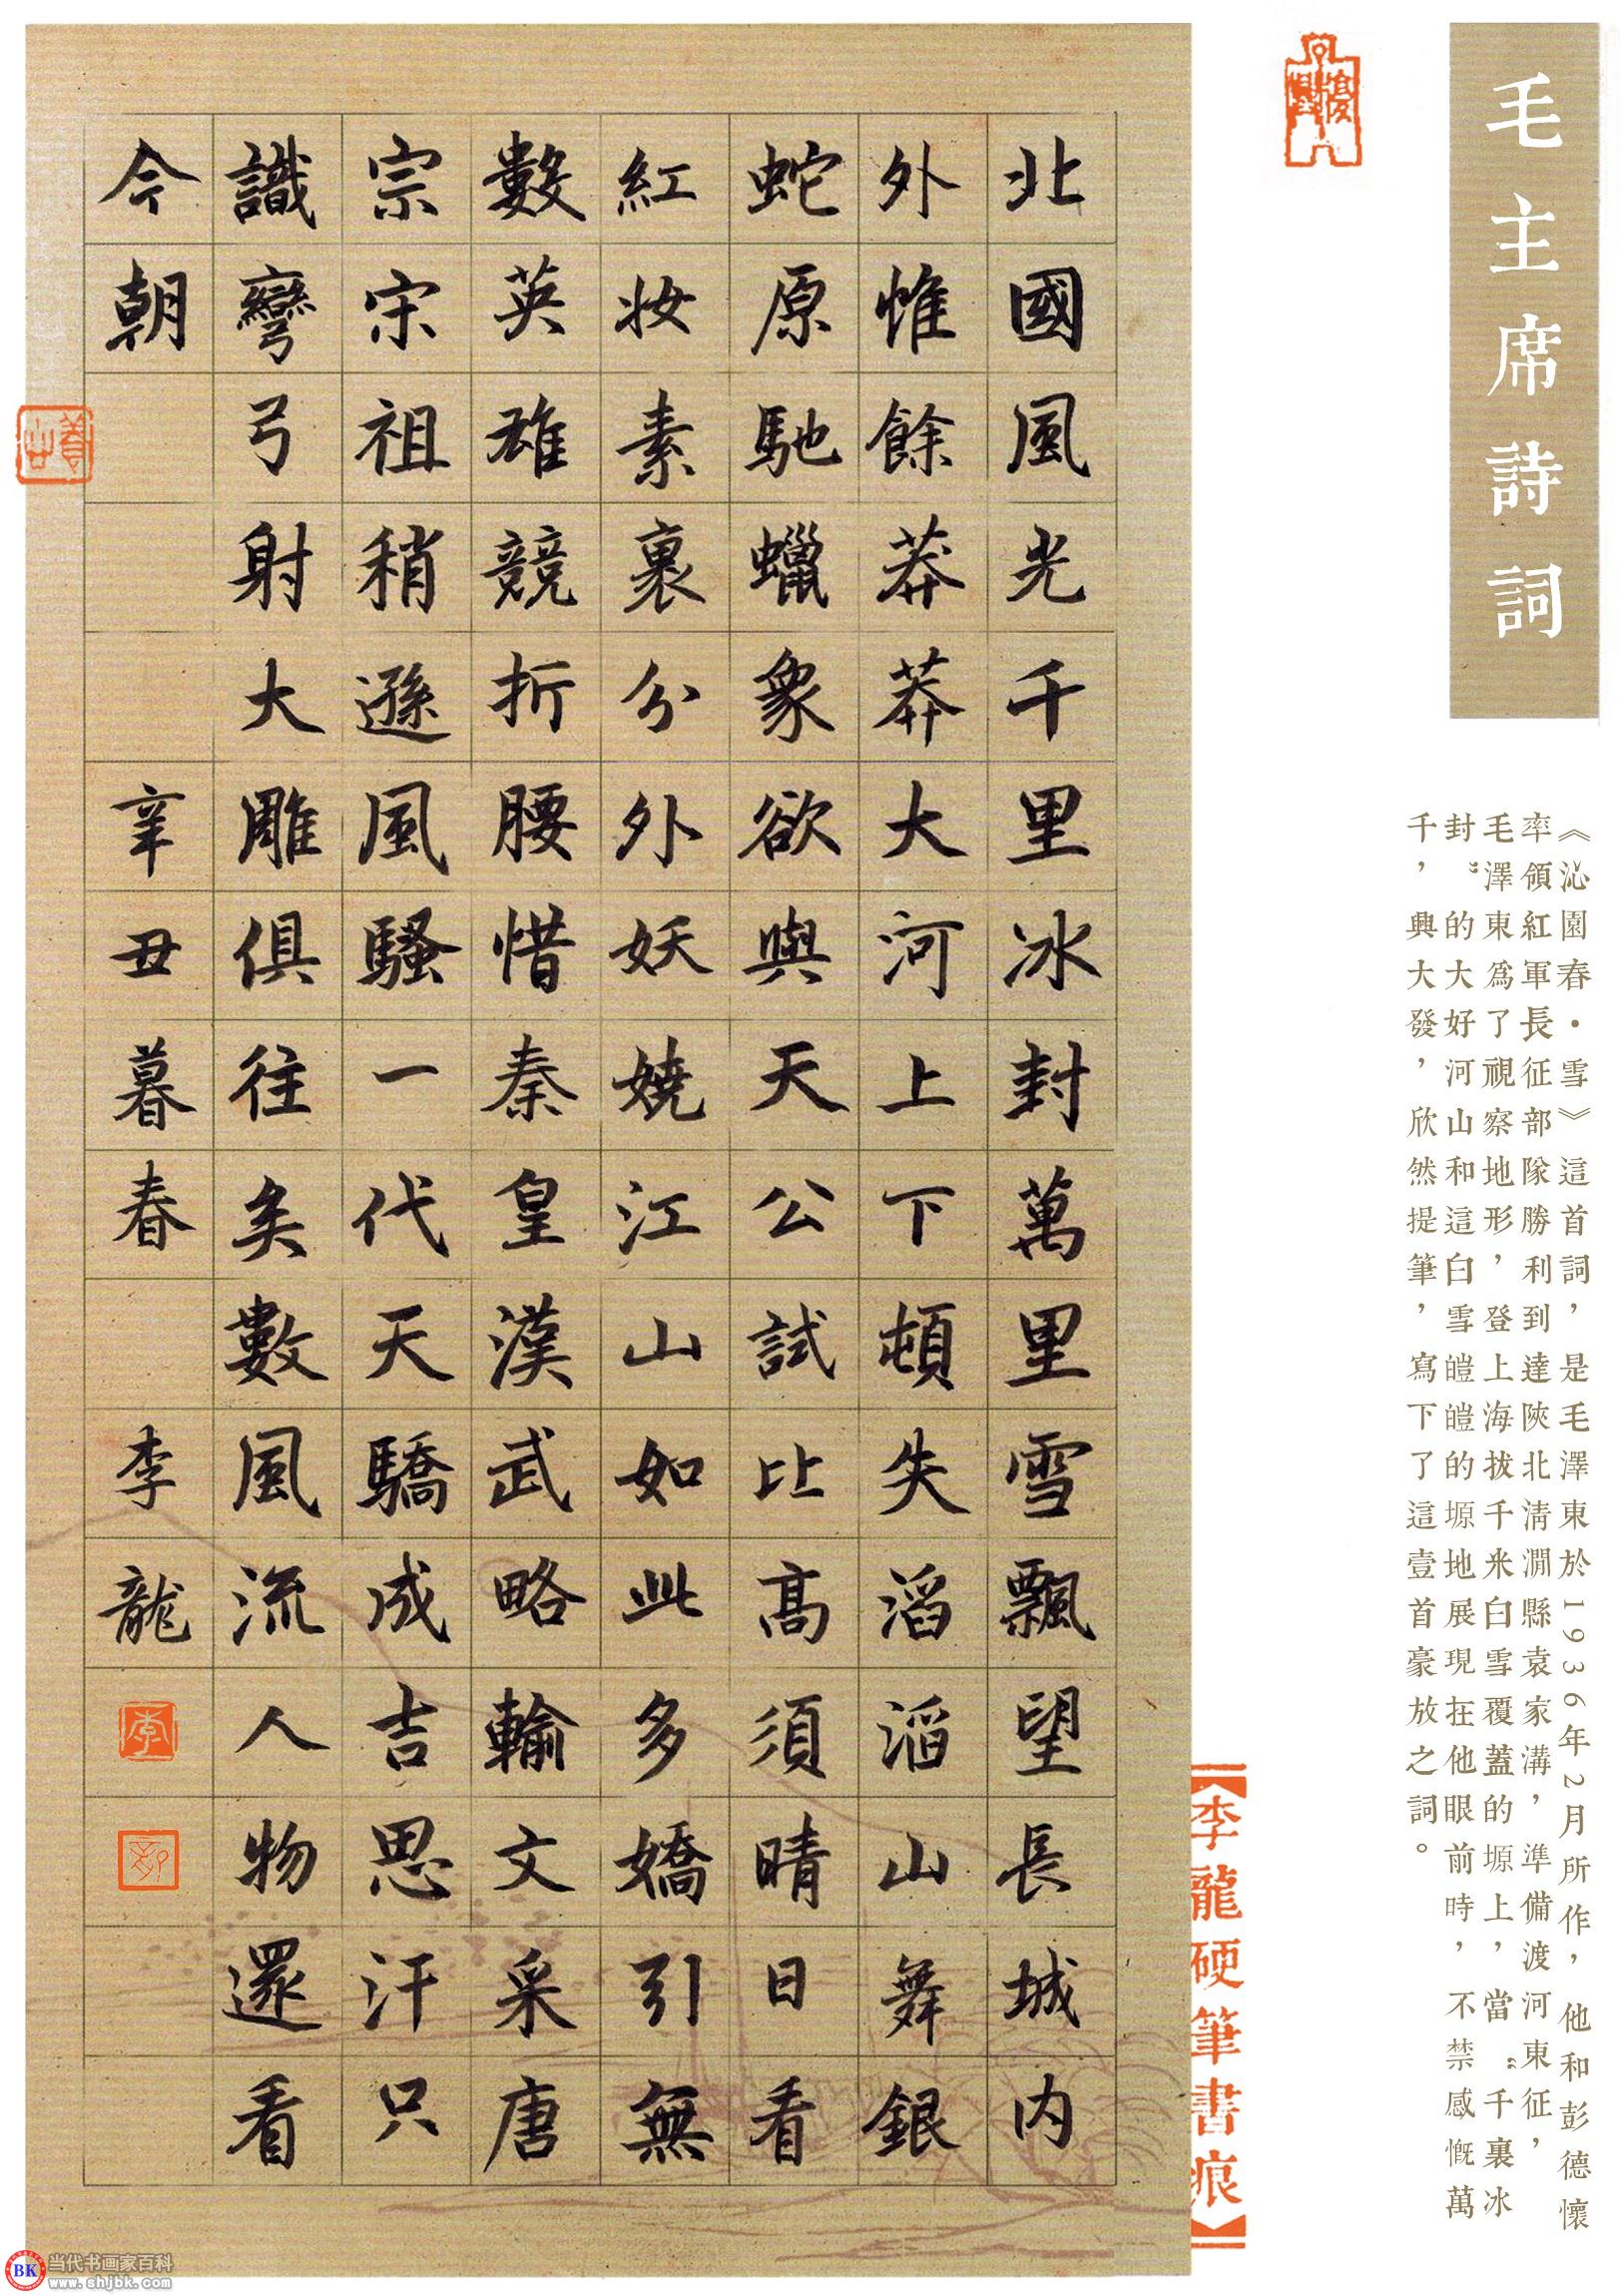 毛主席詩詞
《沁園春·雪》這首詞，是毛澤東於1936年2月所作，他和彭德懷
率領紅軍長征部隊勝利到達陝北清澗縣袁家溝，準備渡河東征，
毛澤東爲了視察地形，登上海拔千米白雪覆蓋的塬上，當“千裏冰
封”的大好河山和這白雪皚皚的塬地展現在他眼前時，不禁感慨萬
千，興大發，欣然提筆，寫下了這壹首豪放之詞。
北國風光千里冰封萬里雪飄望長城内
外惟餘莽莽大河上下頓失滔滔山舞銀
蛇原馳蠟象欲與天公試比高須晴日看
紅妆素裹分外妖嬈江山如此多嬌引無
數英雄競折腰惜秦皇漢武略輸文采唐
宗宋祖稍遜風騷一代天驕成吉思汗只
識彎弓射大雕俱往矣數風流人物還看
今朝 辛丑暮春 李龍
李
【李龍硬筆書痕】
BK 当代书画家百科
www.shjbk.com